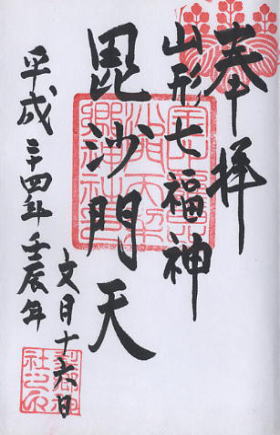 奉拝
山形七福神
毘沙門天
平成二十四年壬辰年
文月十六日